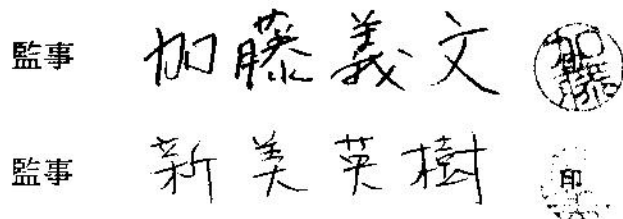 監事 加藤義文 加藤
監事 新美英樹 印